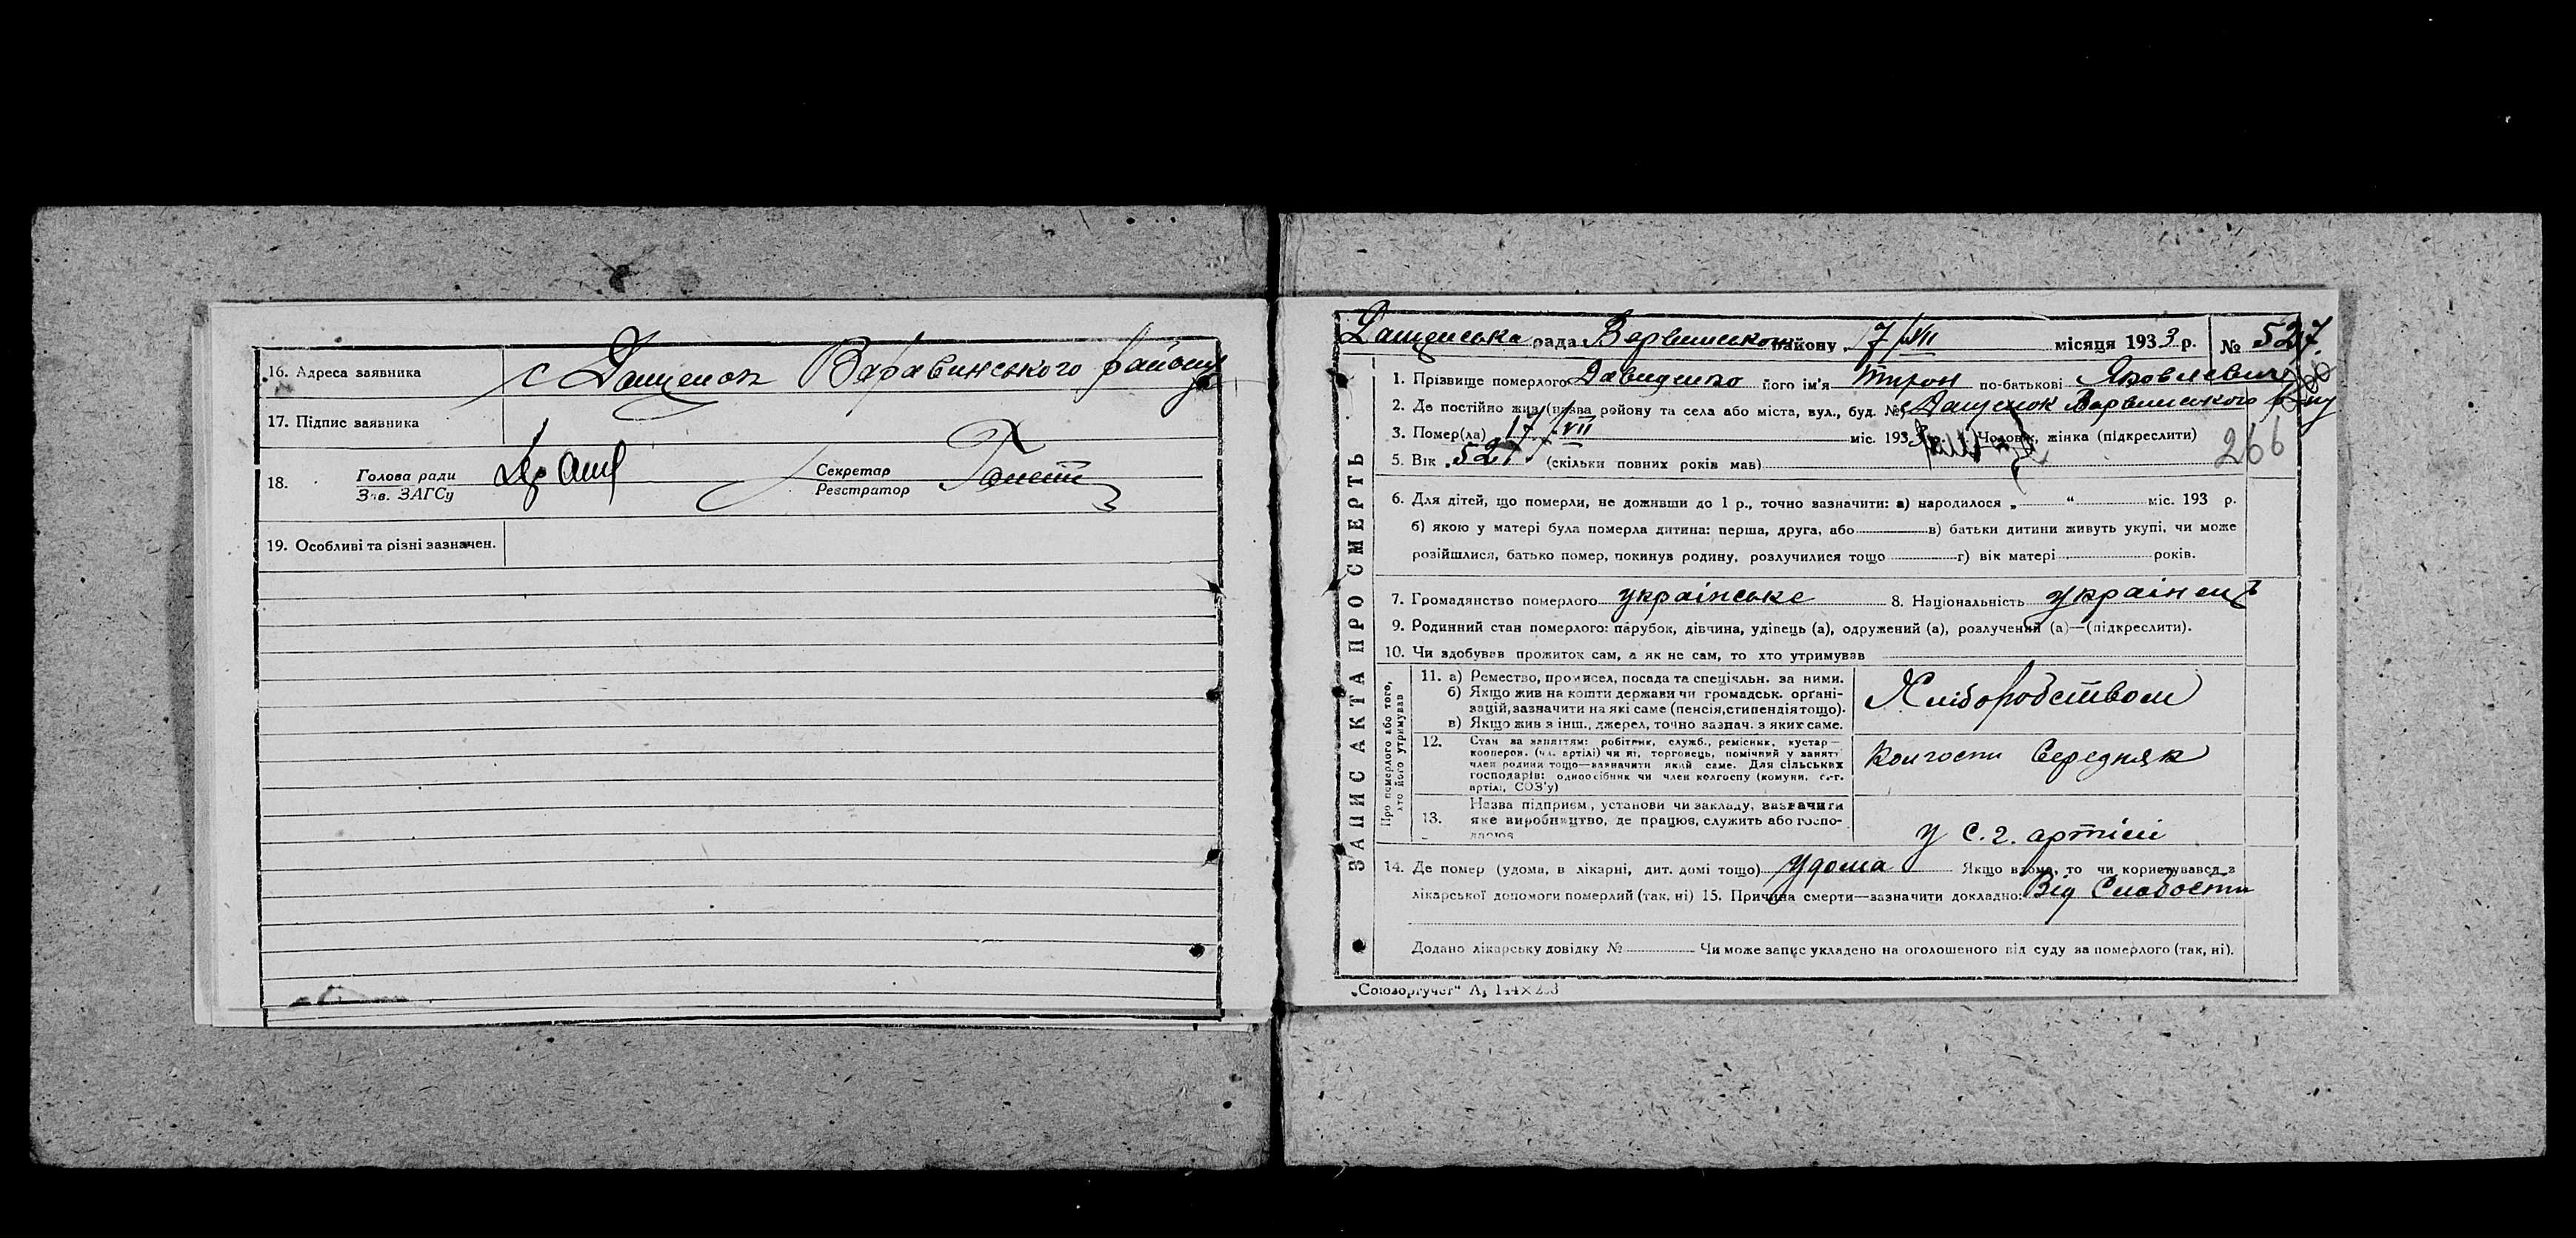 16. Адреса заявника с Дащенок Варавинського району
17. Підпис заявника
18. Голова ради
Зав. ЗАГСу
Секретар
Реєстратор
19. Особливі та різні зазначен.
ЗАПИС АКТА ПРО СМЕРТЬ
Дащенська рада Варвинського району 17/VII місяця 1933 р. № 527
1. Прізвище померлого Давиденко його ім'я Тирон по-батькові Яковлевич
2. Де постійно жив (назва району та села або міста, вул., буд. № с Дащенок Варвинського р-ну
3. Помер(ла) 17/VII міс. 1933 р. Чоловік, жінка (підкреслити)
266
5. Вік 52 (скільки повних років мав)
6. Для дітей, що померли, не доживши до 1 р., точно зазначити: а) народилося „ “ міс. 193 р.
б) якою у матері була померла дитина: перша, друга, або в) батьки дитини живуть укупі, чи може
розійшлися, батько помер, покинув родину, розлучилися тощо г) вік матері років.
7. Громадянство померлого українське 8. Національність українець
9. Родинний стан померлого: парубок, дівчина, удівець (а), одружений (а), розлучений (а)—(підкреслити).
10. Чи здобував прожиток сам, а як не сам, то хто утримував
Про померлого або того,
хто його утримував
11. а) Ремество, промисел, посада та спеціяльн. за ними.
б) Якщо жив на кошти держави чи громадськ. органі-
зацій, зазначити на які саме (пенсія, стипендія тощо).
в) Якщо жив з інш., джерел, точно зазнач. з яких саме.
Хліборобством
12. Стан за заняттям: робітник, служб., ремісник, кустар—
кооперов. (чл. артілі) чи ні, торговець, помічний у занятт
член родини тощо—зазначити який саме. Для сільських
господарів: одноосібник чи член колгоспу (комуни, с.-г.
артілі, СОЗ'у)
Колгосп Середняк
13. Назва підприєм., установи чи закладу, зазначити
яке виробництво, де працює, служить або госпо-
дарює
у с.г. артілі
14. Де помер (удома, в лікарні, дит. домі тощо) удома Якщо вдома, то чи користувався з
лікарської допомоги померлий (так, ні) 15. Причина смерти—зазначити докладно: Від Слабости
Додано лікарську довідку № Чи може запис укладено на оголошеного від суду за померлого (так, ні).
„Союзоргучет“